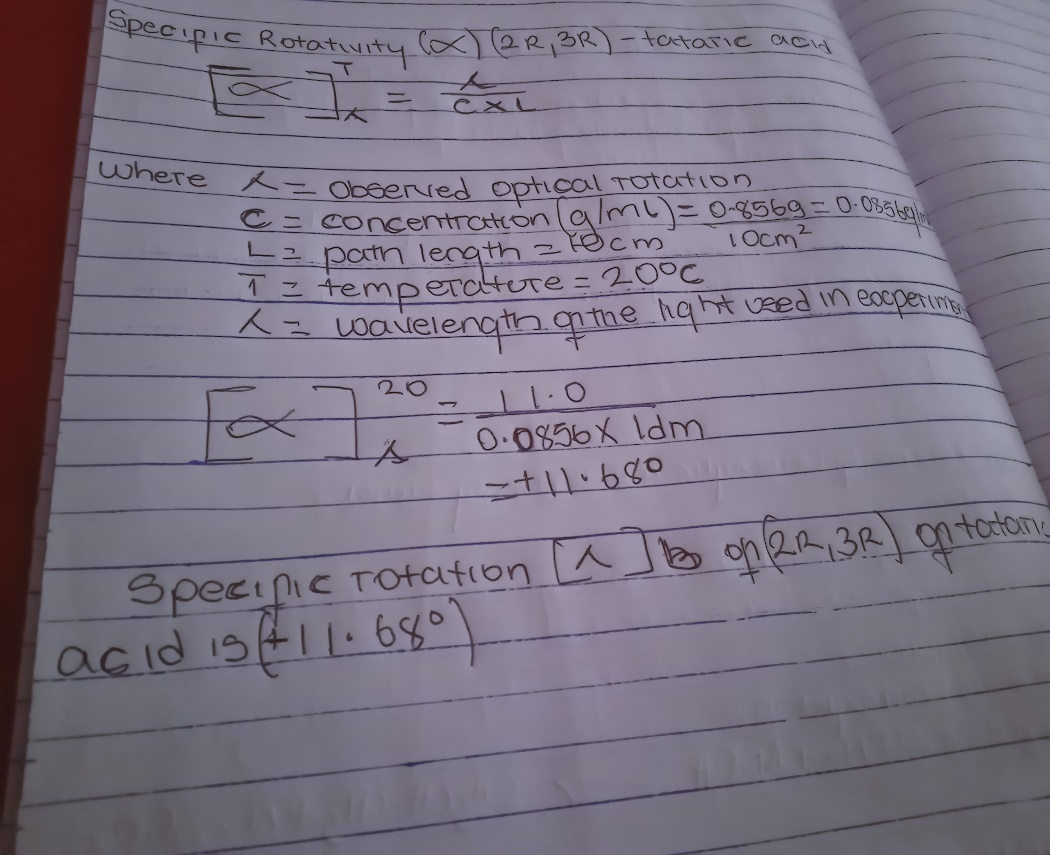 Specific Rotativity (α) (2R, 3R) - tataric acid
[α]ᵀλ = λ / C x L
Where λ = Observed optical rotation
C = concentration (g/ml) = 0.856g / 10cm² = 0.0856g/m
L = path length = 10cm
T = temperature = 20°C
λ = wavelength of the light used in
[α]²⁰λ = 11.0 / 0.0856 x 1dm
= +11.68°
Specific rotation [λ] of (2R, 3R) of tataric
acid is (+11.68°)